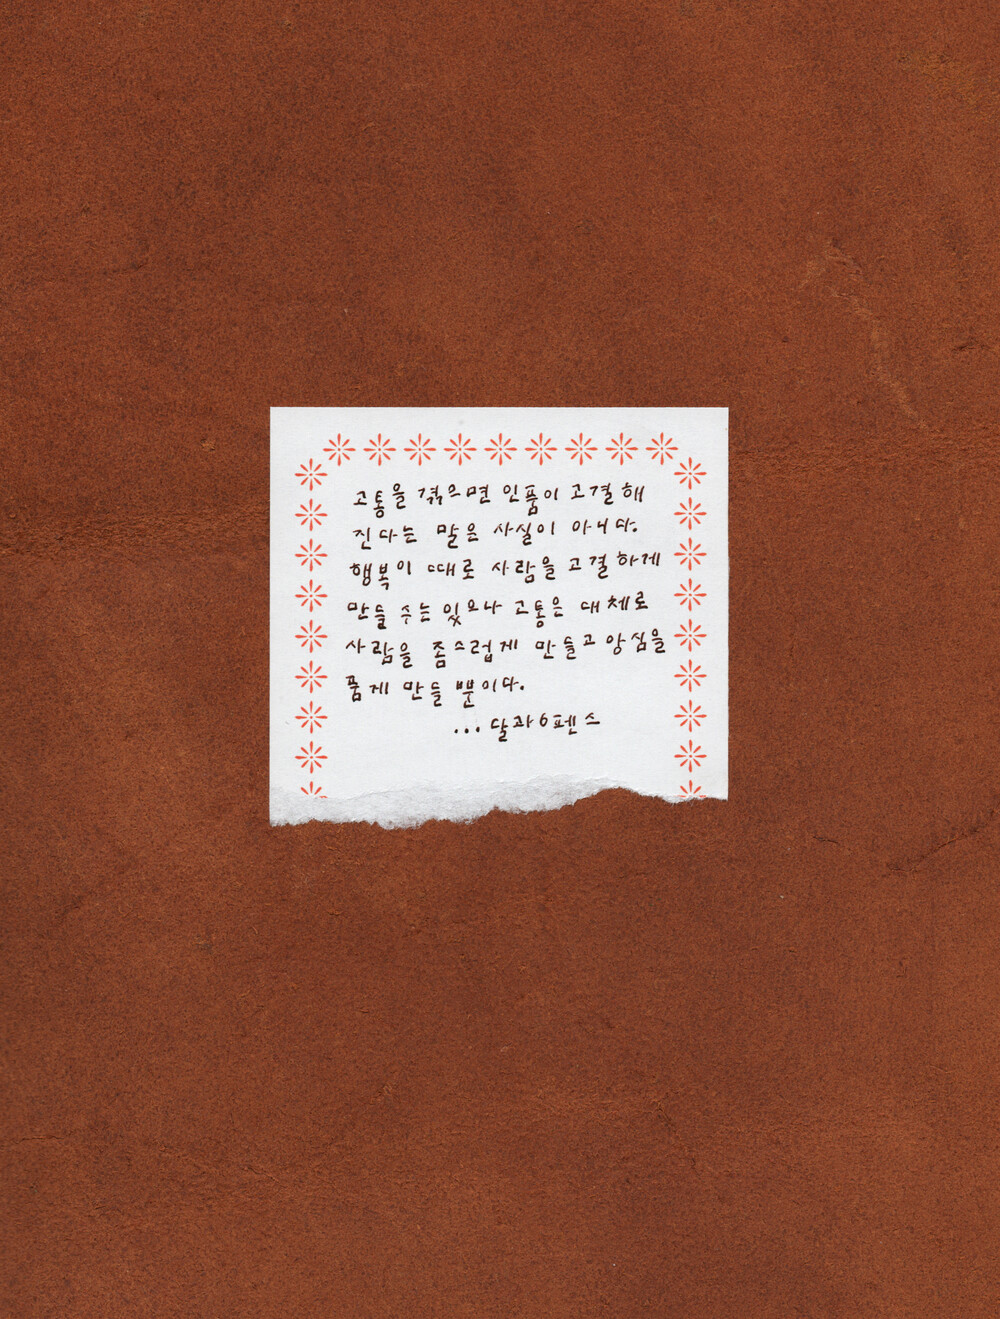 고통을 겪으면 인품이 고결해
진다는 말은 사실이 아니다.
행복이 때로 사람을 고결하게
만들 수는 있으나 고통은 대체로
사람을 좀스럽게 만들고 앙심을
품게 만들 뿐이다.
... 달과 6펜스